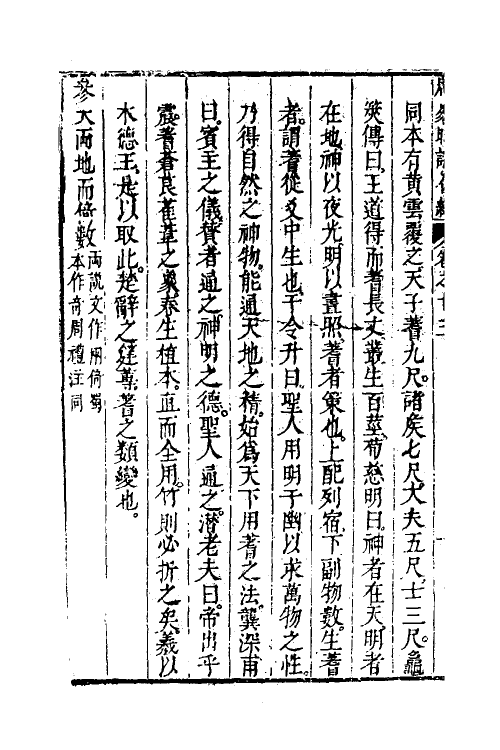 同本有黃雲覆之天子蓍九尺諸矦七尺大夫五尺士三尺龜
筴傳曰王道得而蓍長丈叢生百莖荀慈明曰神者在天明者
在地神以夜光明以晝照蓍者策也上配列宿下副物數生蓍
者謂蓍從爻中生也干令升曰聖人用明于幽以求萬物之性
乃得自然之神物能通天地之精始爲天下用蓍之法龔深甫
曰賓主之儀贊者通之神明之德聖人通之潛老夫曰帝出乎
震蓍蒼筤萑葦之象春生植本直而全用竹則必折之矣羲以
木德王是以取此楚辭之筳䔛蓍之類變也
參天兩地而倚數
兩說文作㒳倚蜀
本作奇周禮注同